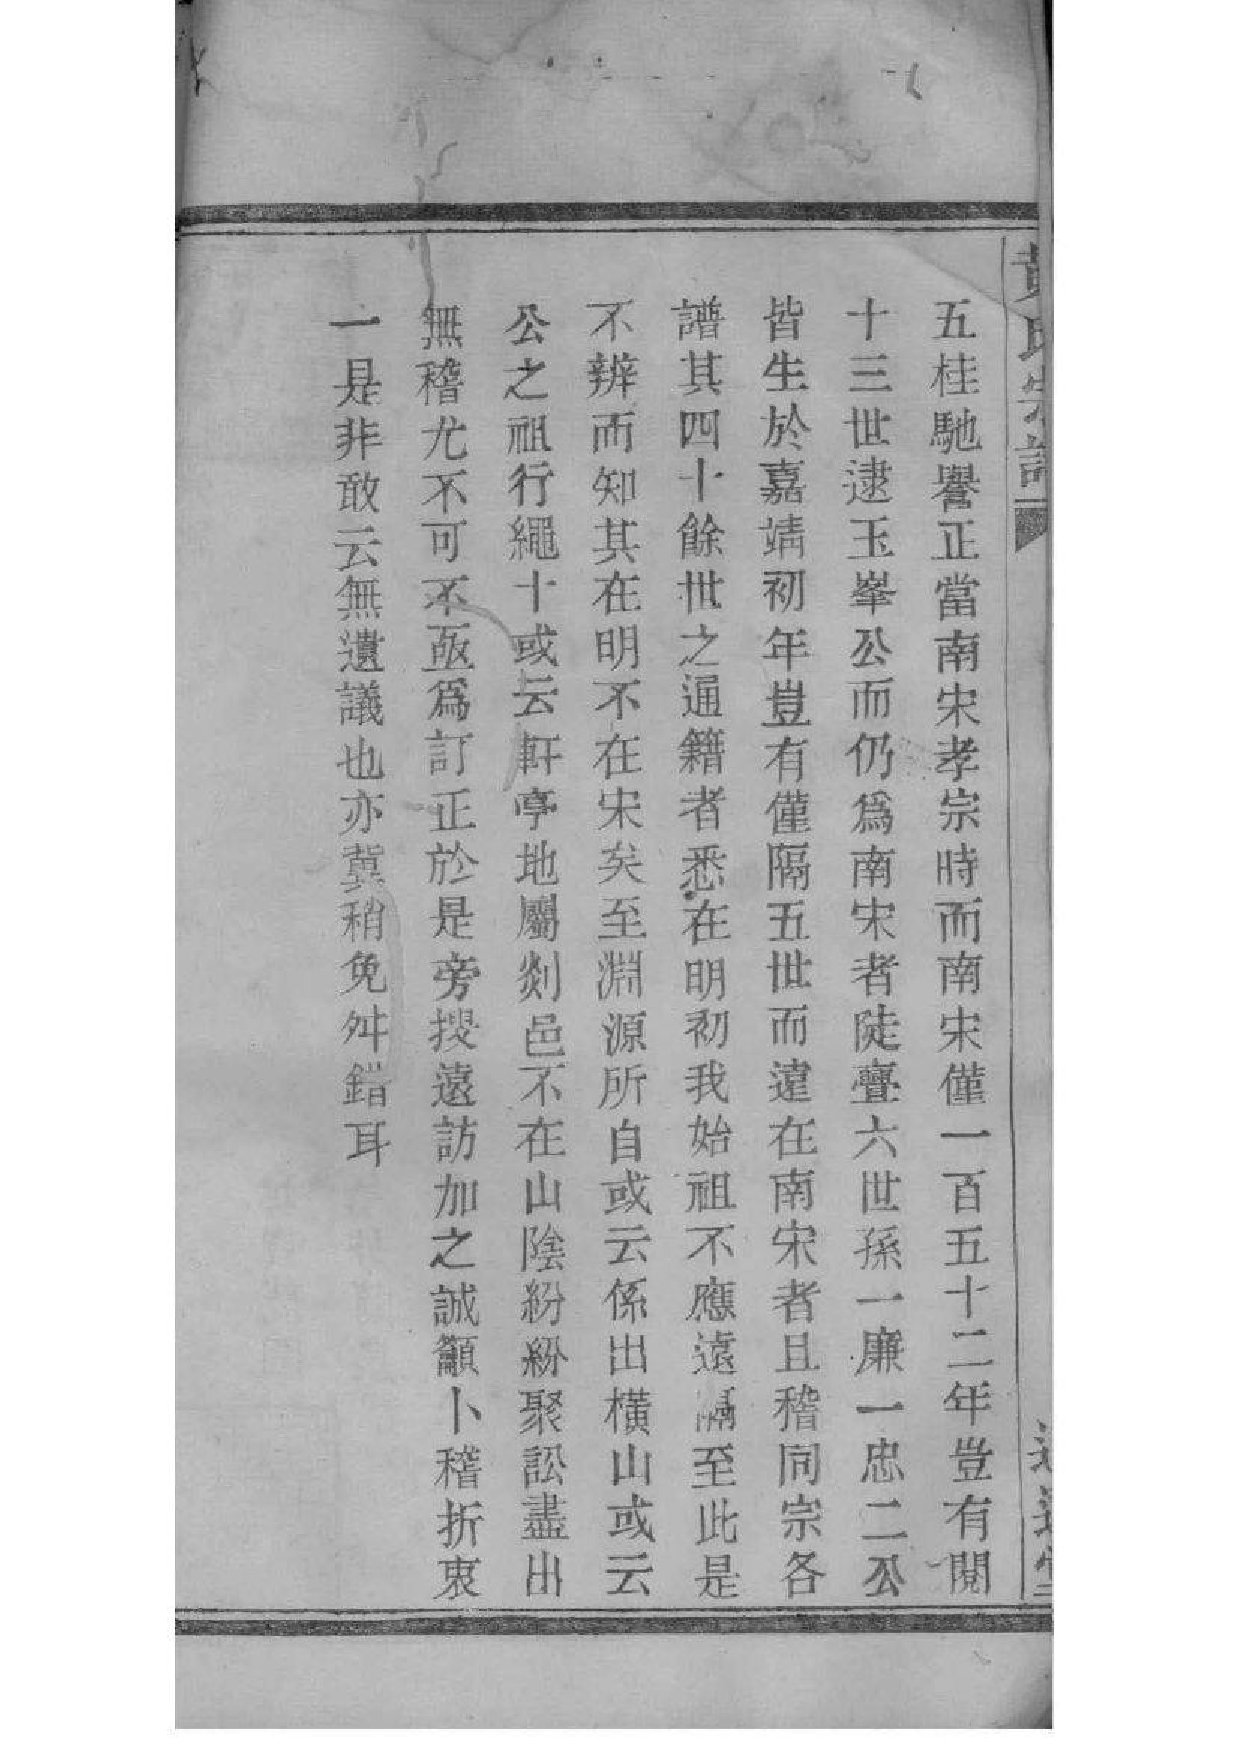 黄氏宗譜
五桂馳譽正當南宋孝宗時而南宋僅一百五十二年豈有閱
十三世逮玉峯公而仍爲南宋者陡疊六世孫一廉一忠二公
皆生於嘉靖初年豈有僅隔五世而遠在南宋者且稽同宗各
譜其四十餘世之通籍者悉在明初我始祖不應遠隔至此是
不辨而知其在明不在宋矣至淵源所自或云係出橫山或云
公之祖行繩十或云軒亭地屬剡邑不在山陰紛紛聚訟盡出
無稽尤不可不亟爲訂正於是旁搜遠訪加之誠籲卜稽折衷
一是非敢云無遺議也亦冀稍免舛錯耳